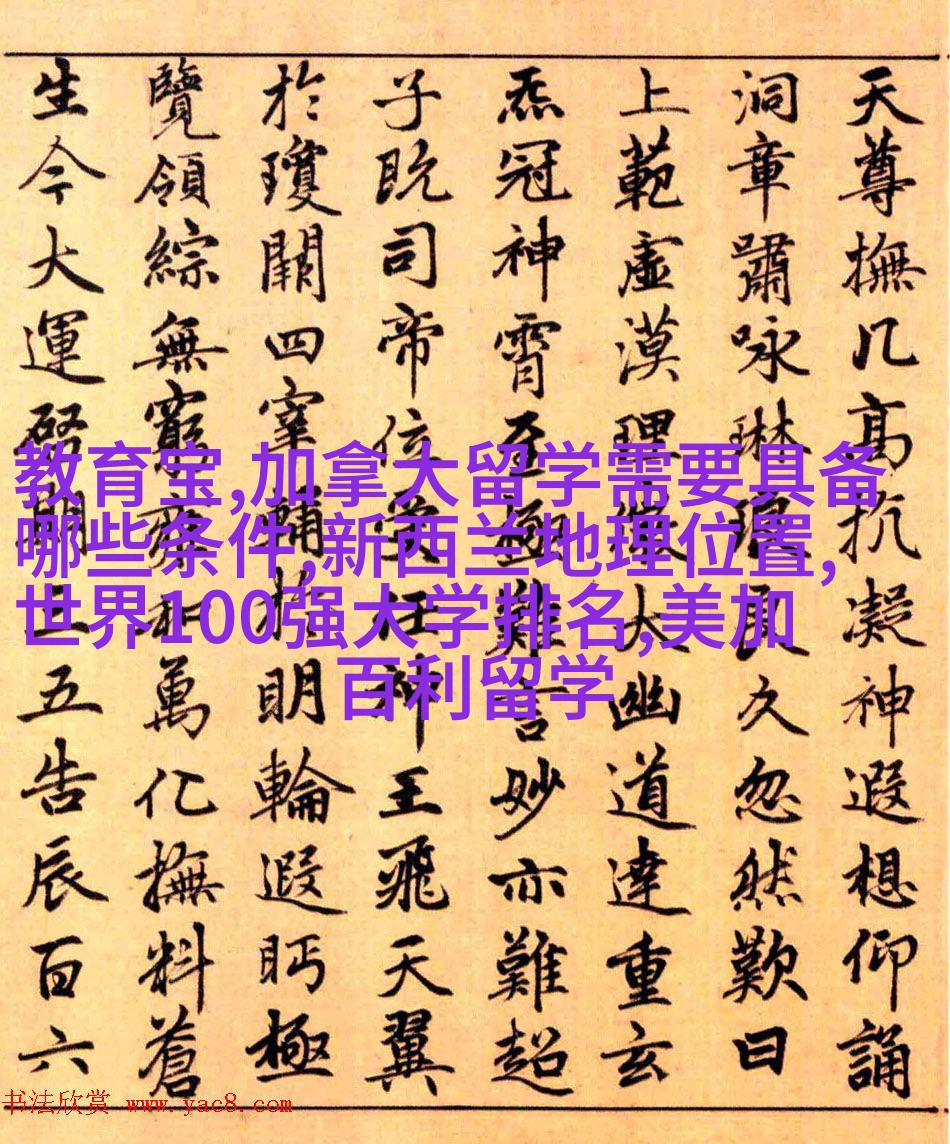 天尊撫几高抗凝神遐想仰誦
洞章嘯咏琳琅良久忽然歎曰
上範虛漠理微太幽道達重玄
炁冠神霄至極難言妙亦難超
子既司帝位受任神王飛天翼
於瓊闕四輔於明輪遐眄極
覽領綜無窮和萬化撫料蒼
生今大運啓期三五告辰百六
教育宝,加拿大留学需要具备
哪些条件,新西兰地理位置,
世界100强大学排名,美加
百利留学
书法欣赏 www.yac8.com